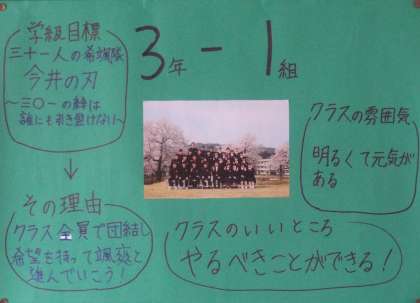 学級目標
三十一人の希颯隊
今井の刃
～三〇一の絆は
誰にも引き裂けない～
↓
その理由
クラス全員で団結し
希望を持って颯爽と
進んでいこう！
3年－1組
クラスの雰囲気
明るくて元気が
ある
クラスのいいところ
やるべきことができる！